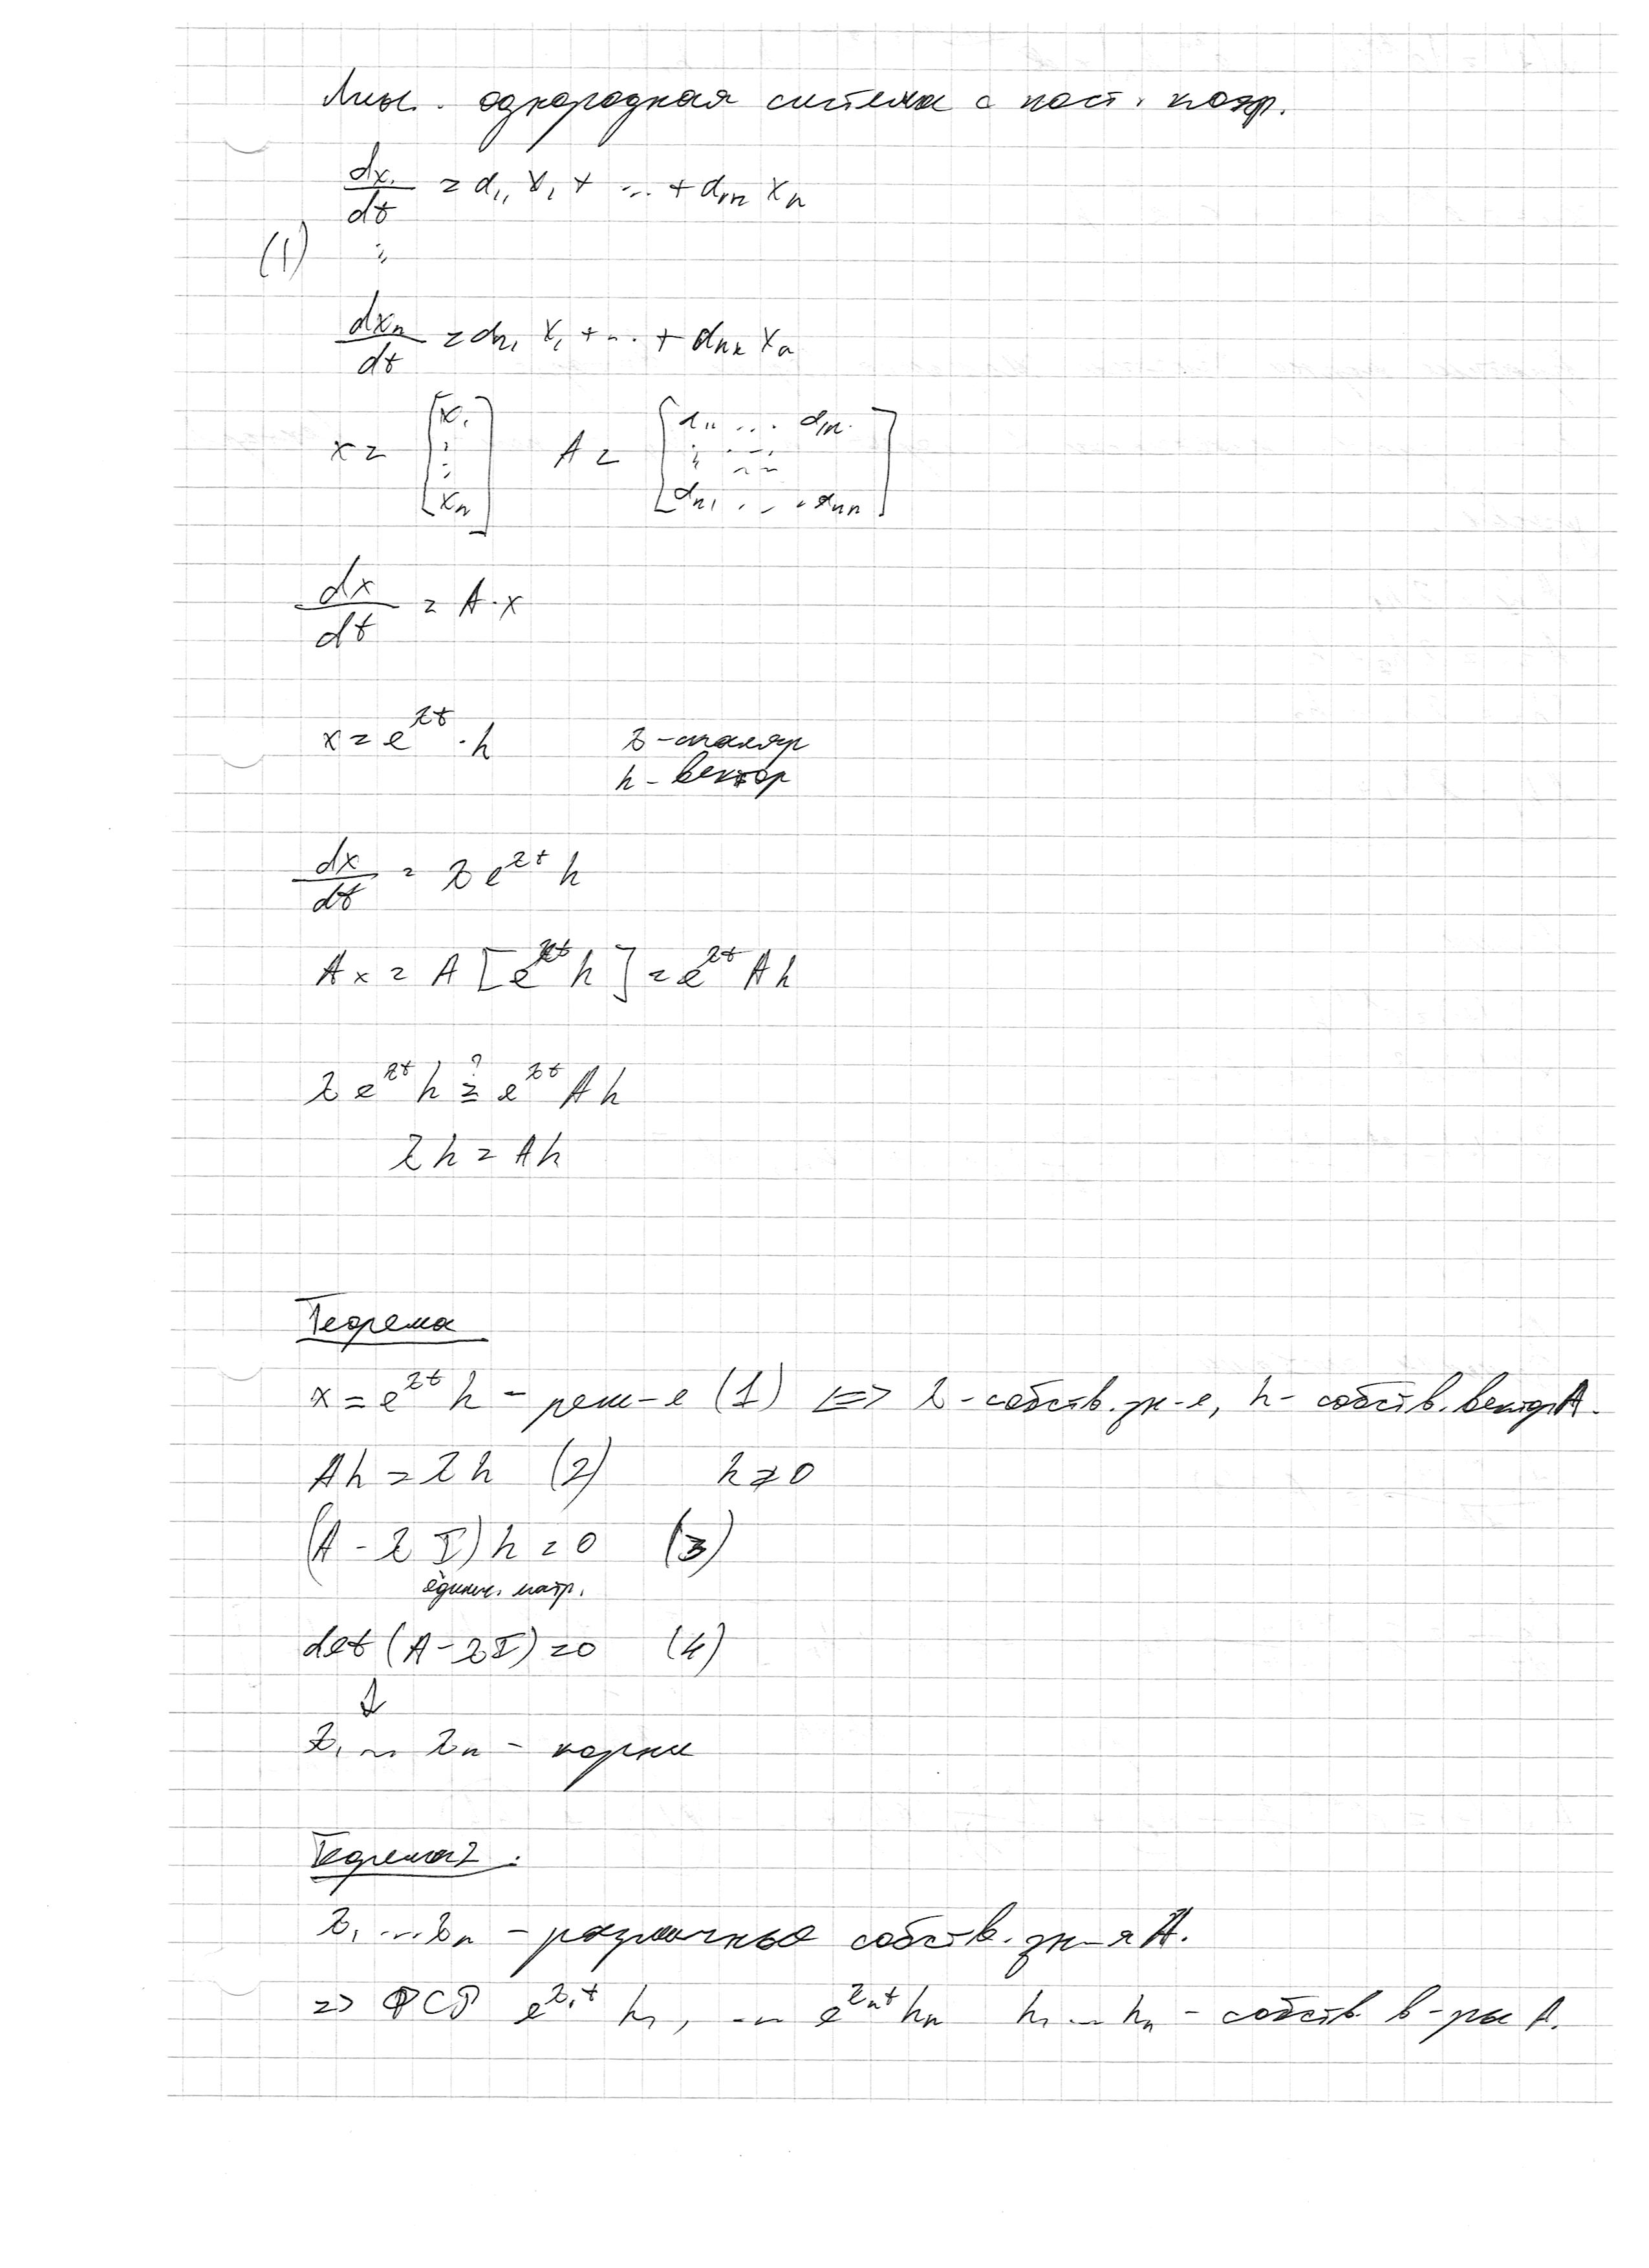 Лин. однородная система с пост. коэф.
dx₁/dt = α₁₁ x₁ + ... + α₁ₙ xₙ
(1) ⋮
dxₙ/dt = αₙ₁ x₁ + ... + αₙₙ xₙ
x = [x₁ ⋮ xₙ] A = [α₁₁ ... α₁ₙ ⋮ ... αₙ₁ ... αₙₙ]
dx/dt = A·x
x = e^{λt} · h λ - скаляр
h - вектор
dx/dt = λ e^{λt} h
Ax = A [e^{λt} h] = e^{λt} A h
λ e^{λt} h ?= e^{λt} A h
λh = Ah
Теорема
x = e^{λt} h - реш-е (1) <=> λ - собств. зн-е, h - собств. вектор A.
Ah = λh (2) h ≠ 0
(A - λI) h = 0 (3)
единич. матр.
det (A - λI) = 0 (4)
↓
λ₁ ... λₙ - корни
Теорема 2.
λ₁ ... λₙ - различные собств. зн-я A.
=> ФСР e^{λ₁t} h₁, ... e^{λₙt} hₙ h₁ ... hₙ - собств. в-ры A.